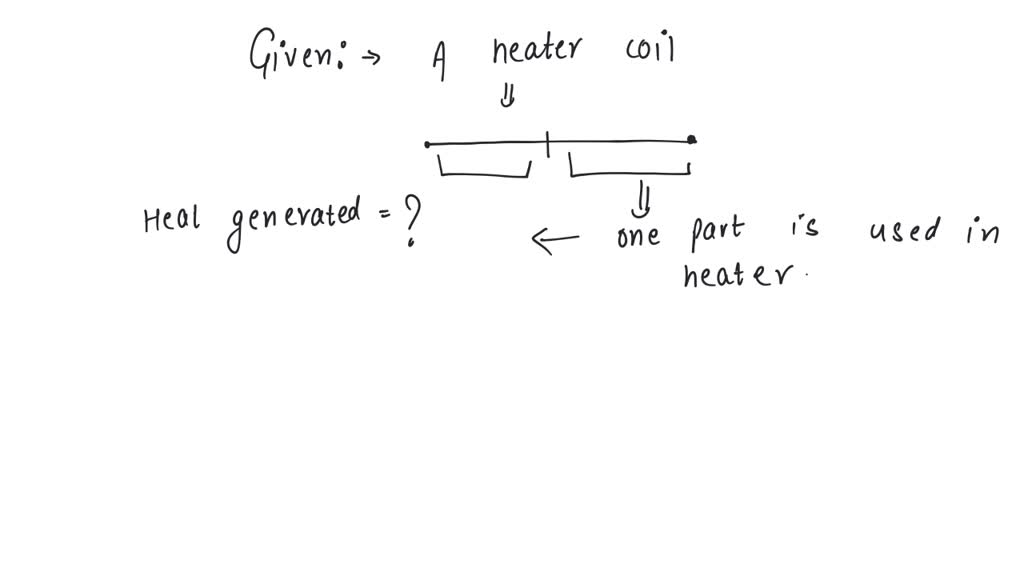 Given: → A heater coil
⇓
⇓
Heal generated = ?
← one part is used in
heater.